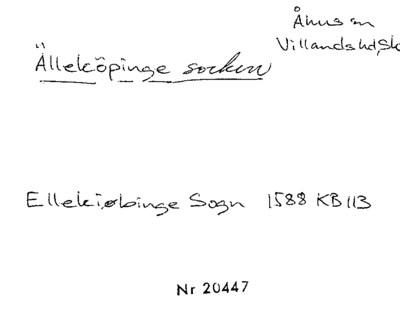 Åhus sn
Villands hd, Sk
Älleköpinge socken
Ellekiøbinge Sogn 1588 KB 113
Nr 20447